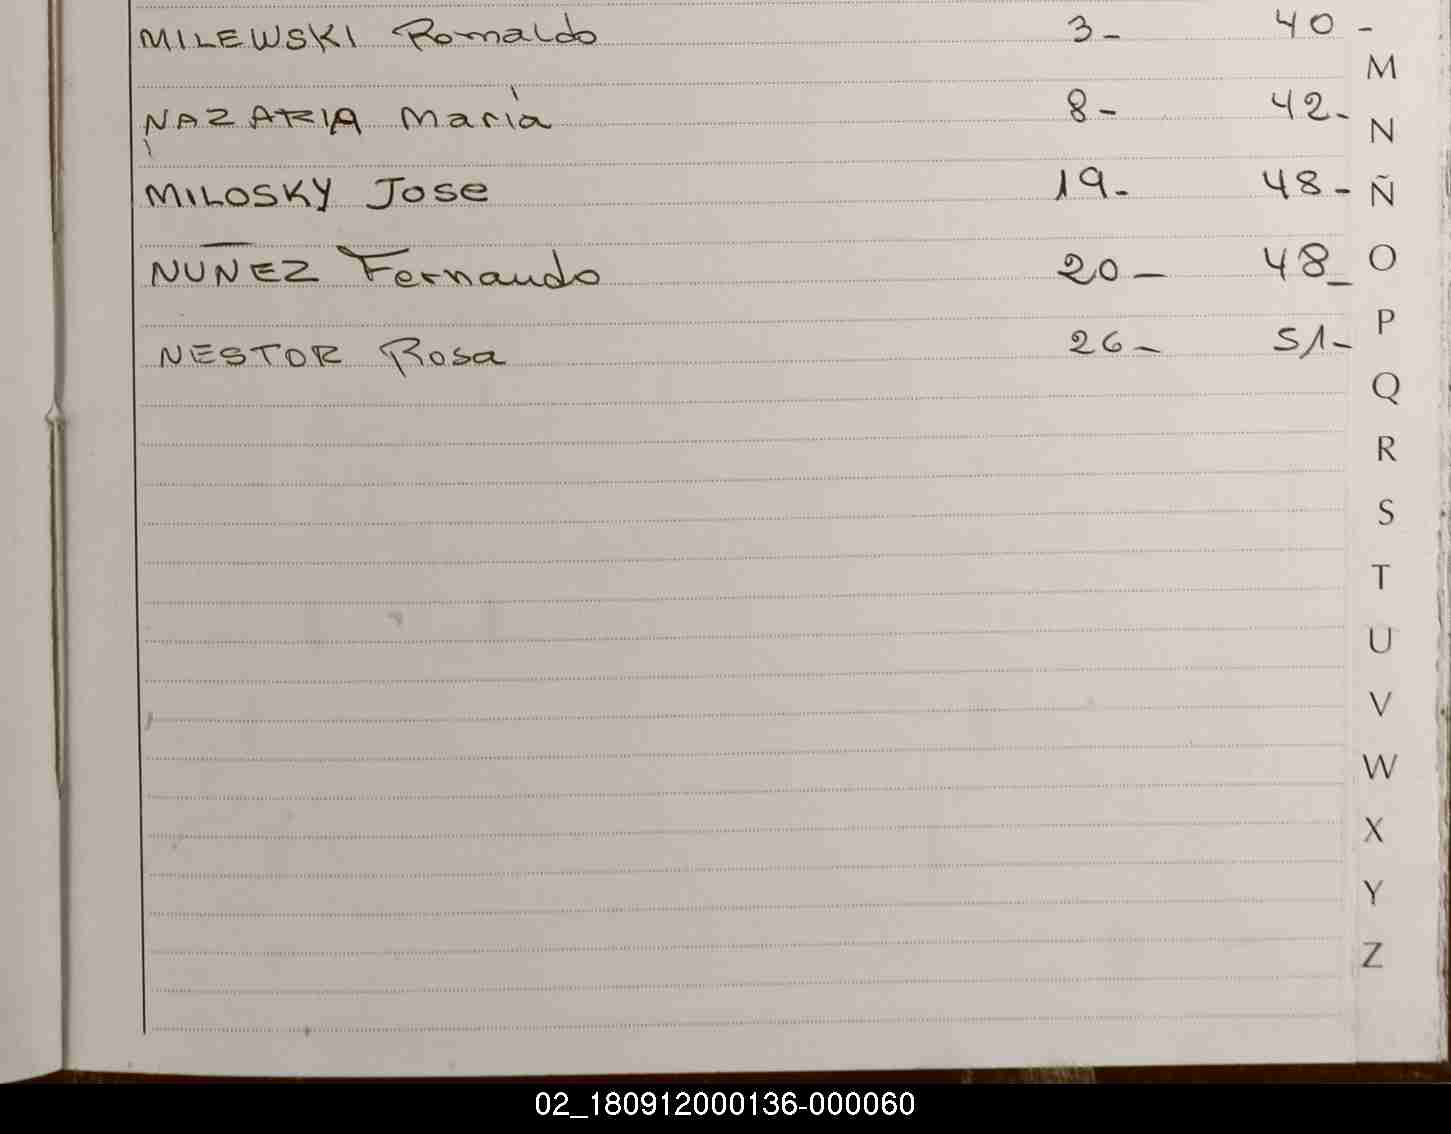 MILEWSKI Romaldo 3- 40-
NAZARIA María 8- 42-
MILOSKY Jose 19- 48-
NUÑEZ Fernando 20- 48-
NESTOR Rosa 26- 51-
M
N
Ñ
O
P
Q
R
S
T
U
V
W
X
Y
Z
02_180912000136-000060